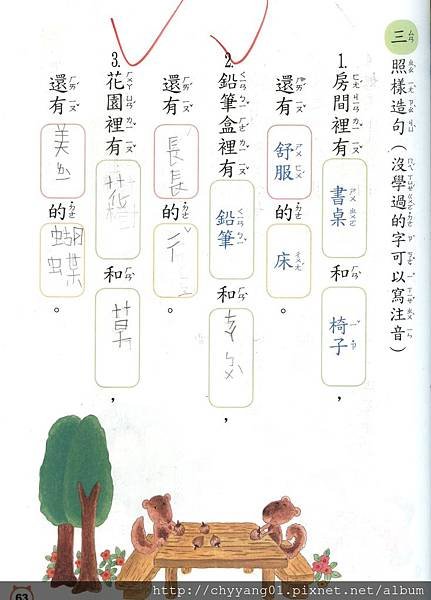 三 照樣造句（沒學過的字可以寫注音）
1.房間裡有書桌和椅子，
還有舒服的床。
2.鉛筆盒裡有鉛筆和，
還有長長的ㄔˇ。
3.花園裡有花和草，
還有美的蝴蝶。
63
http://chyyang01.pixnet.net/album